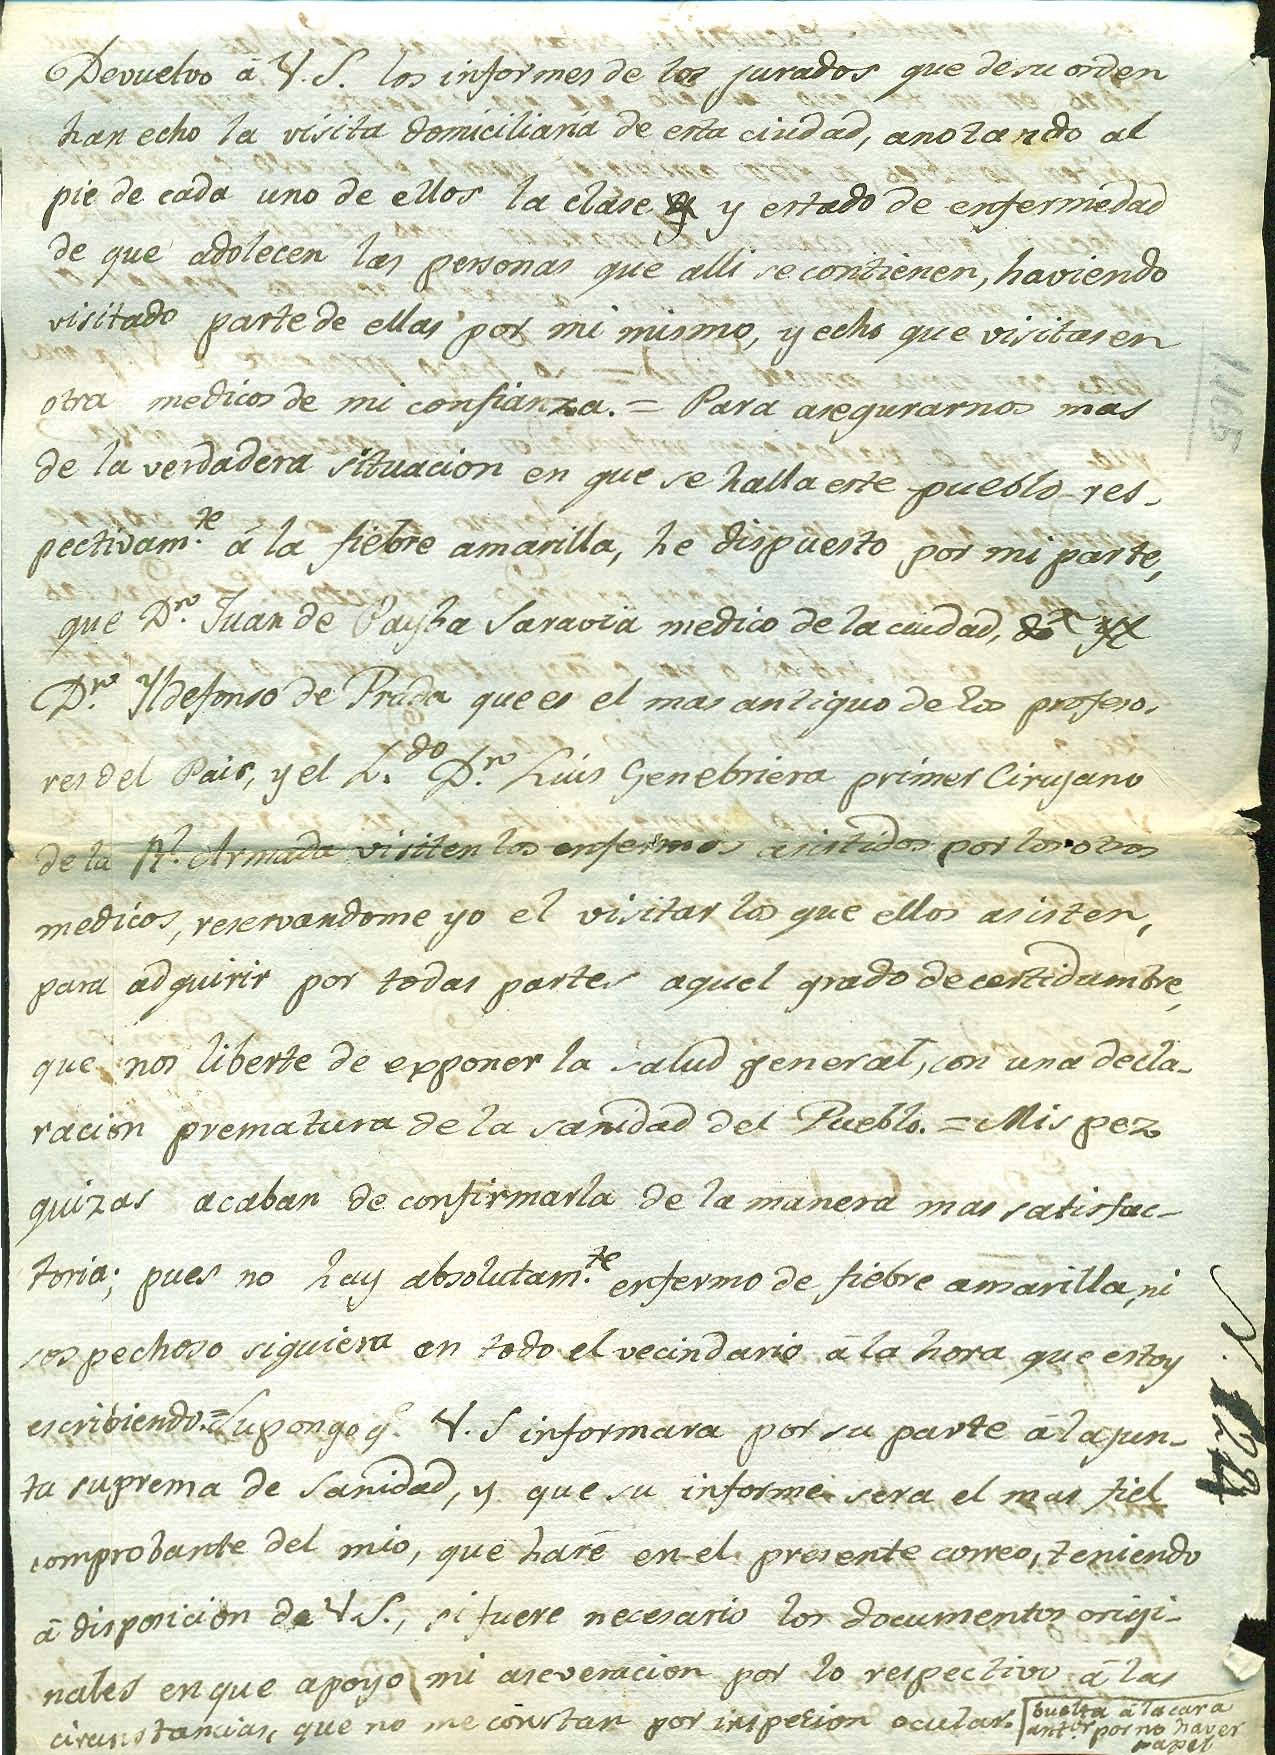 Devuelvo â V.S. los informes de los jurados que de su orden
han echo la visita domiciliaria de esta ciudad, anotando al
pie de cada uno de ellos la clase y estado de enfermedad
de que adolecen las personas que alli se contienen, haviendo
visitado parte de ellas por mi mismo, y echo que visitasen
otra medicos de mi confianza. = Para asegurarnos mas
de la verdadera situacion en que se halla este pueblo res-
pectivam.te â la fiebre amarilla, he dispuesto por mi parte,
que Dn. Juan de Payba Saravia medico de la ciudad,
Dn. Yldefonso de Prada que es el mas antiguo de los profeso-
res del Pais, y el L.do Dn. Luis Genebriera primer Cirujano
de la Rl. Armada visiten los enfermos asistidos por los otros
medicos, reservandome yo el visitar los que ellos asisten,
para adquirir por todas partes aquel grado de certidumbre,
que nos liberte de exponer la salud general, con una decla-
racion prematura de la sanidad del Pueblo. = Mis pez
quizas acaban de confirmarla de la manera mas satisfac-
toria; pues no hay absolutam.te enfermo de fiebre amarilla, ni
sospechoso siquiera en todo el vecindario â la hora que estoy
escribiendo. = Supongo q. V.S informara por su parte â la jun-
ta suprema de Sanidad, y que su informe sera el mas fiel
comprobante del mio, que harê en el presente correo, teniendo
â disposicion de V.S., si fuere necesario los documentos origi-
nales en que apoyo mi aseveracion por lo respectivo â las
circunstancias, que no me constan por inspecion ocular.
buelta â la cara
ant.or por no haver
papel
1105
N. 124